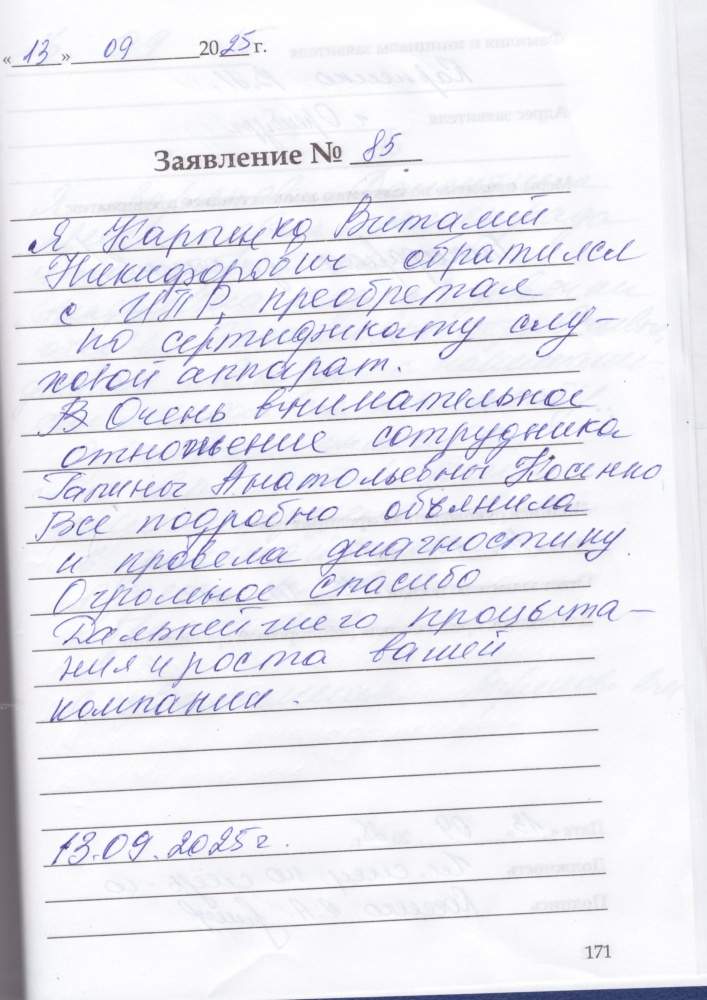 «13» 09 2025 г.
Заявление № 85
Я Карпенко Виталий
Никифорович обратился
с ИПР, преобретал
по сертификату слу-
ховой аппарат.
В Очень внимательное
отношение сотрудника
Галины Анатольевны Косенко
Все подробно объяснила
и провела диагностику
Огромное спасибо
Дальнейшего процвета-
ния и роста вашей
компании.
13.09.2025г.
171